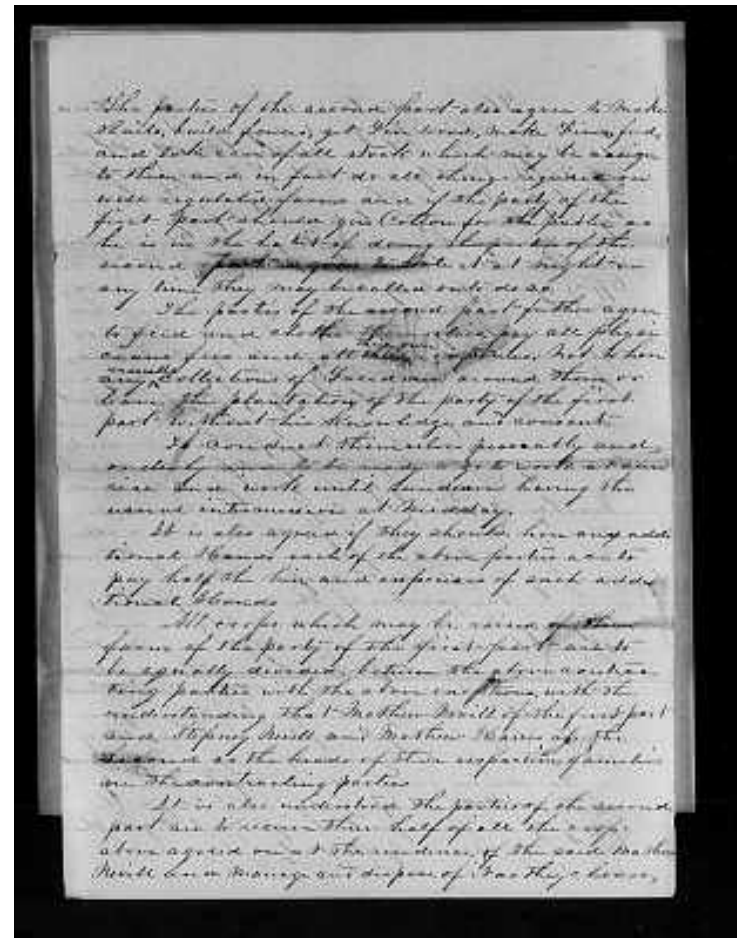 The parties of the second part also agree to make
Rails, build fences, get Fire wood, make Fires, feed
and take care of all stock which may be assign
to them and in fact do all things required on
well regulated farms and if the party of the
first part should gin Cotton for the public as
he is in the habit of doing the parties of the
second part at night or
any time they may be called on to do so
The parties of the second part further agree
to feed and clothe themselves pay all physi
cians fees and all other expenses. Not to have
any collections of Freedmen around them or
leave the plantation of the party of the first
part without his knowledge and consent.
To conduct themselves peaceably and
orderly to be ready to go to work at sun
rise and work until Sundown having the
usual intermission at Midday.
It is also agreed if they should hire any addi
tional Hands each of the above parties are to
pay half the hire and expenses of such addi
tional Hands
All crops which may be raised
farm of the party of the first part are to
be equally divided, between the above contrac
ting parties with the above with the
understanding that Mathew Nevill of the first part
and Stepney Nevill and Mathew of the
second as the heads of their respective families
are the contracting parties
It is also understood the parties of the second
part are to receive their half of all the crops
above agreed on at the residence of the said Mathew
Nevill and manage and dispose of as they choose,